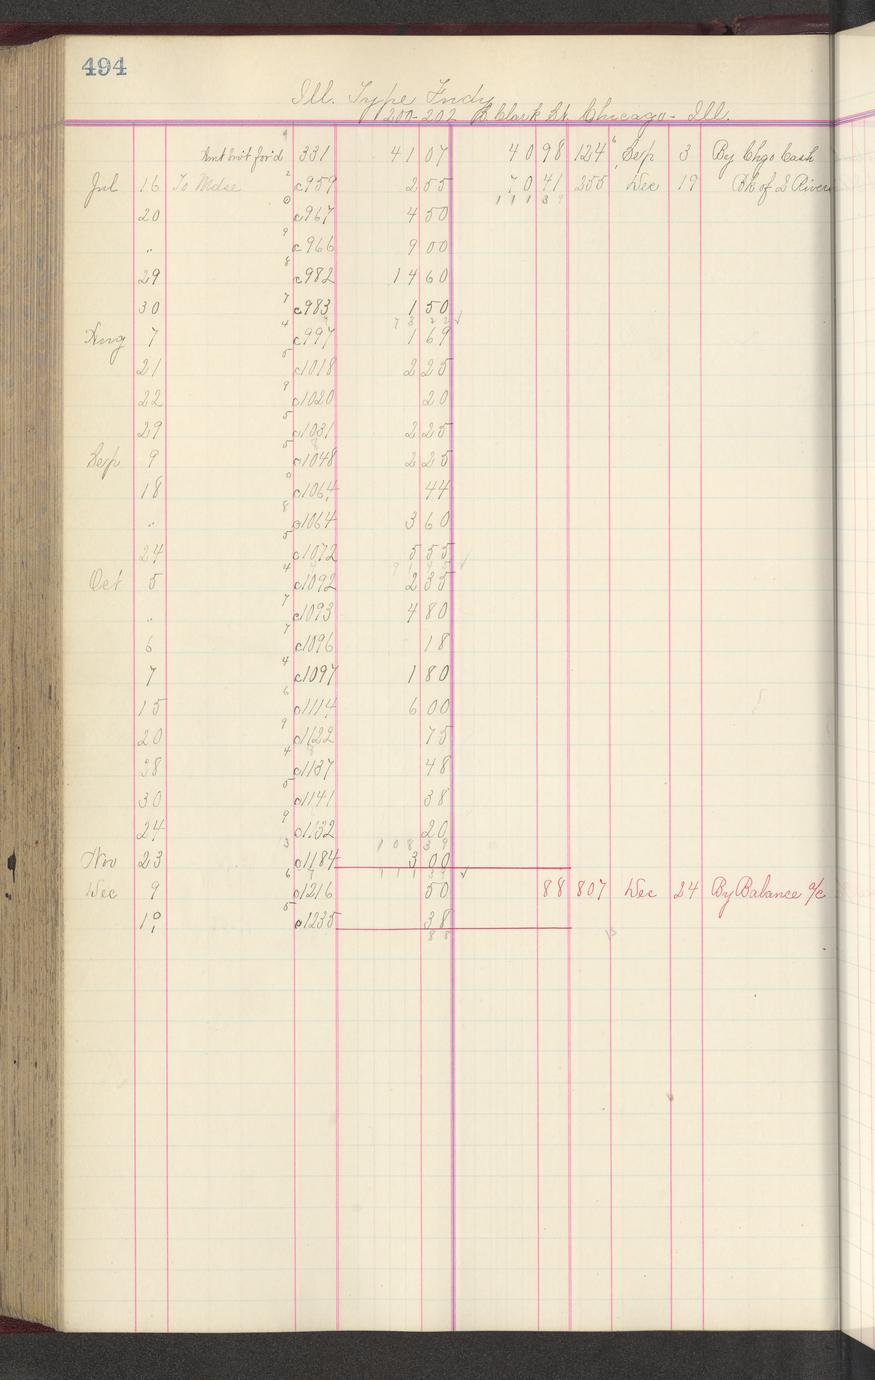 494
Ill. Type Fndy
200-202 S. Clark St. Chicago - Ill.
Amt bro't for'd 331 41 07 40 98 124 Sep 3 By Chgo Cash
Jul 16 To Mdse c959 2 55 70 41 255 Dec 19 Bk of
20 c967 4 50 111 39
" c966 9 00
29 c982 14 60
30 c983 1 50
73 22 ✓
Aug 7 c997 1 69
21 c1018 2 25
22 c1020 20
29 c1031 2 25
Sep 9 c1048 2 25
18 c1064 44
" c1064 3 60
24 c1072 5 55
91 45 ✓
Oct 5 c1092 2 35
" c1093 4 80
6 c1096 18
7 c1097 1 80
15 c1114 6 00
20 c1122 75
28 c1137 48
30 c1141 38
24 c1132 20
108 39
Nov 23 c1184 3 00
111 39 ✓
Dec 9 c1216 50 88 807 Dec 24 By Balance a/c
19 c1235 38
88